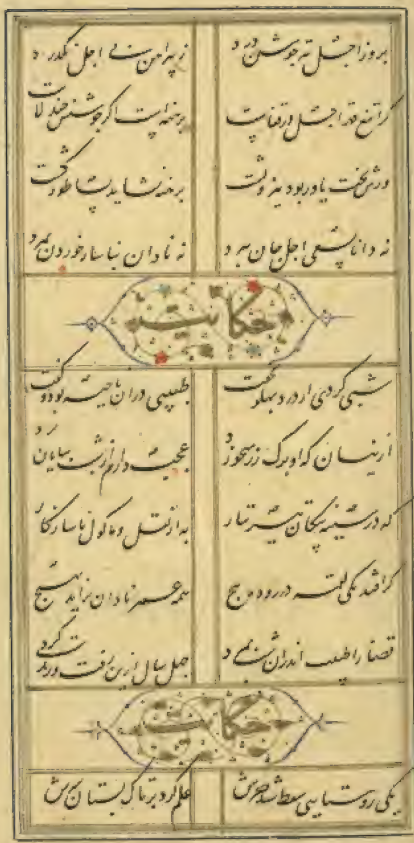 بروز اجل نیزه جوشن درد ز پیراهن بی اجل نگذرد
کرا تیغ قهر اجل در قفاست برهنه است اگر جوشنش چند لاست
ورش بخت یاور بود پشت برهنه نشاید بساطور کشت
نه دانا بسعی اجل جان ببرد نه نادان بناساز خوردن بمرد
حکایت
شبی کردی از درد پهلو نخفت طبیبی دران ناحیت بود و گفت
ازینسان که او برگ رز میخورد عجب دارم ار شب بپایان برد
که در سینه پیکان تیر تتار به از نقل و ماکول ناسازگار
گر افتد بیک لقمه در روده پیچ همه عمر نادان براید بهیچ
قضا را طبیب اندران شب بمرد چهل سال ازین رفت و زندست کرد
حکایت
یکی روستایی سقط شد خرش علم کرد بر تاک بستان سرش